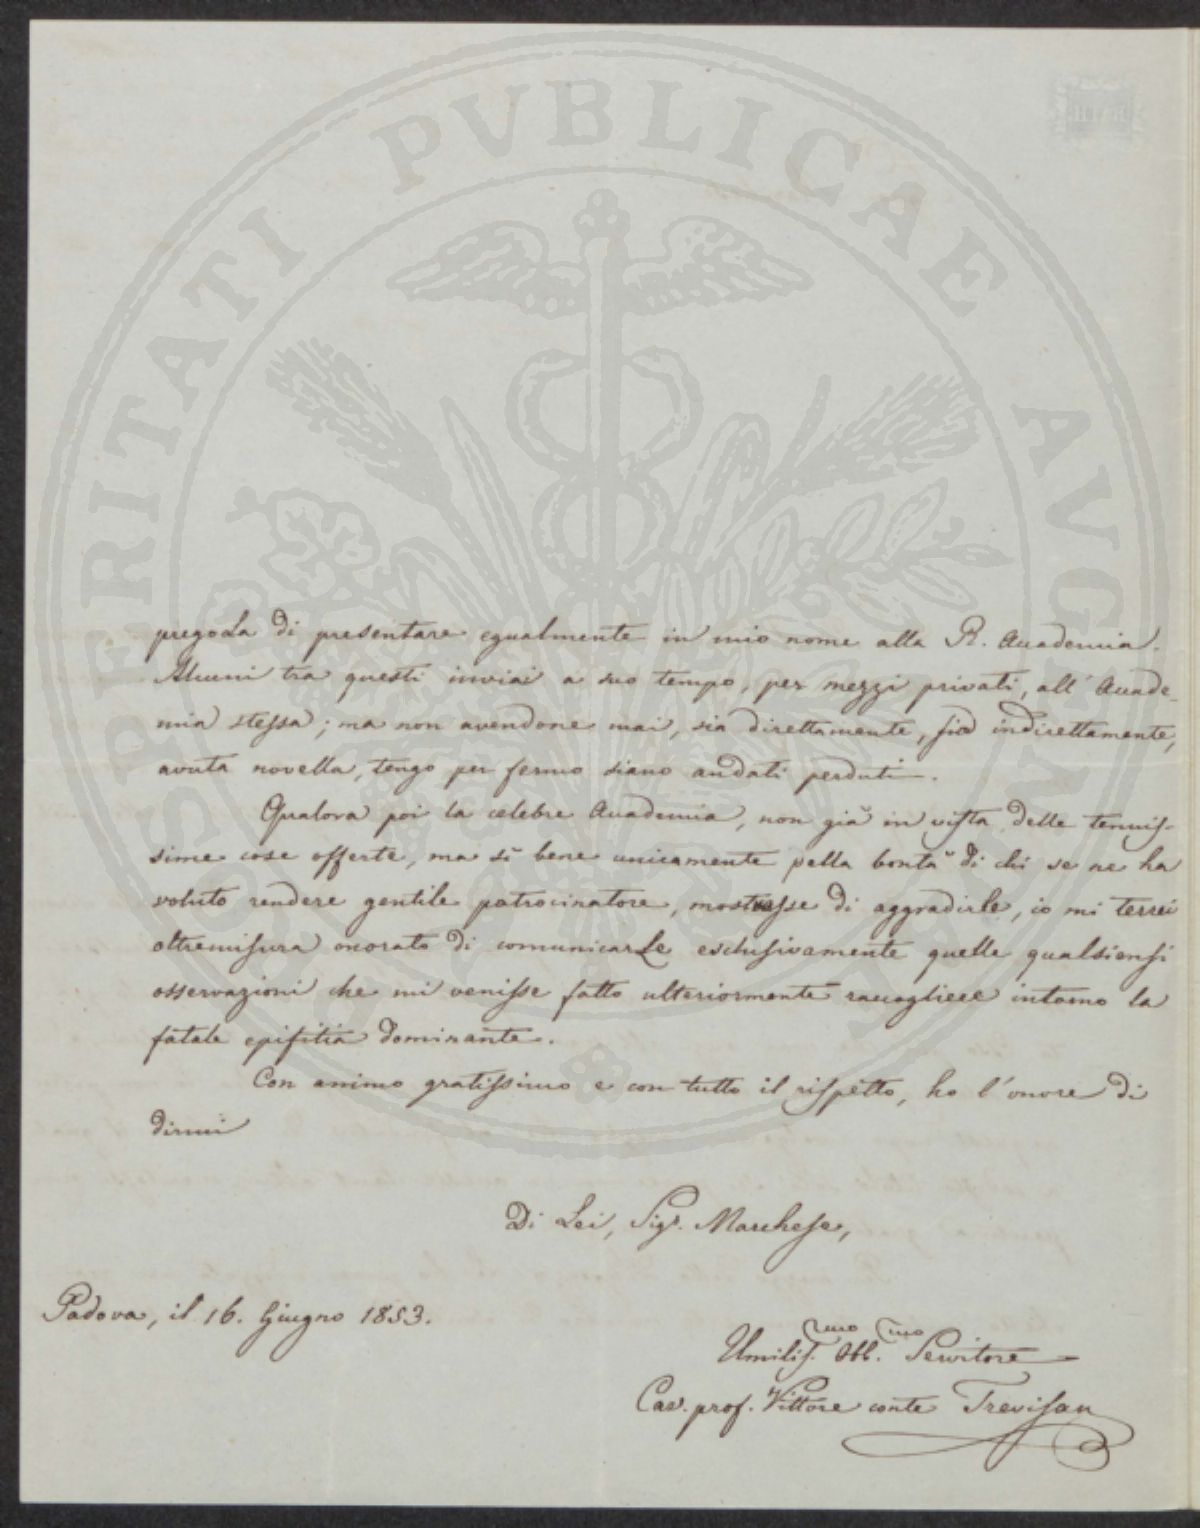 PROSPERITATI PVBLICAE AVGENDAE
pregoLa di presentare egualmente in mio nome alla R. Accademia.
Alcuni tra questi inviai a suo tempo, per mezzi privati, all' Accade-
mia stessa; ma non avendone mai, sia direttamente, sia indirettamente,
avuta novella, tengo per fermo siano andati perduti.
Qualora poi la celebre Accademia, non già in vista delle tenuis-
sime cose offerte, ma sì bene unicamente pella bontà di chi se ne ha
voluto rendere gentile patrocinatore, mostrasse di aggradirle, io mi terrei
oltremisura onorato di comunicarLe esclusivamente quelle qualsiensi
osservazioni che mi venisse fatto ulteriormente raccogliere intorno la
fatale epifitia dominante.
Con animo gratissimo e con tutto il rispetto, ho l'onore di
dirmi
Di Lei, Sigr. Marchese,
Padova, il 16. Giugno 1853.
Umilis.mo Obb.mo Servitore
Cav. prof. Vittore conte Trevisan